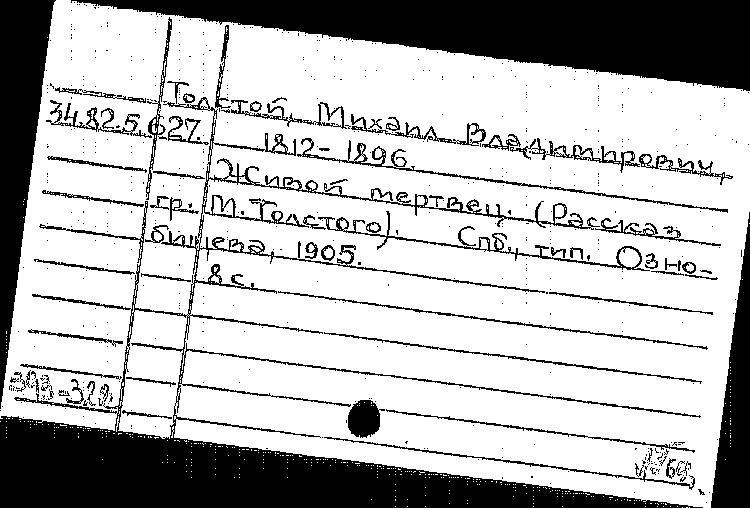 Толстой, Михаил Владимирович,
34.82.5.627.
1812-1896.
Живой мертвец. (Рассказ
гр. М. Толстого). Спб., тип. Озно-
бишева, 1905.
8 с.